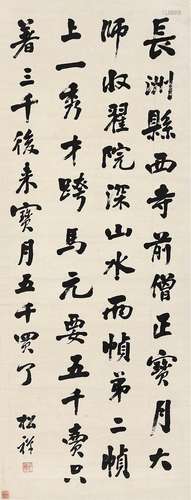 長洲縣西寺前僧正寶月大
師收翟院深山水兩幀弟二幀
上一秀才跨馬元要五千賣只
著三千後來寶月五千買了
松禪